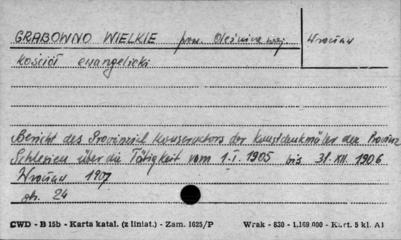 GRABOWNO WIELKIE pow. Oleśnica woj. Wrocław
kościół ewangelicki
Bericht des Provinzial Konservators der Kunstdenkmäler der Provinz
Schlesien über die Tätigkeit vom 1.I.1905 bis 31.XII.1906
Wrocław 1907
str. 24
CWD - B 15b - Karta katal. (z liniat.) - Zam. 1625/P Wrak - 830 - 1,169.000 - Kart. 5 kl. A1